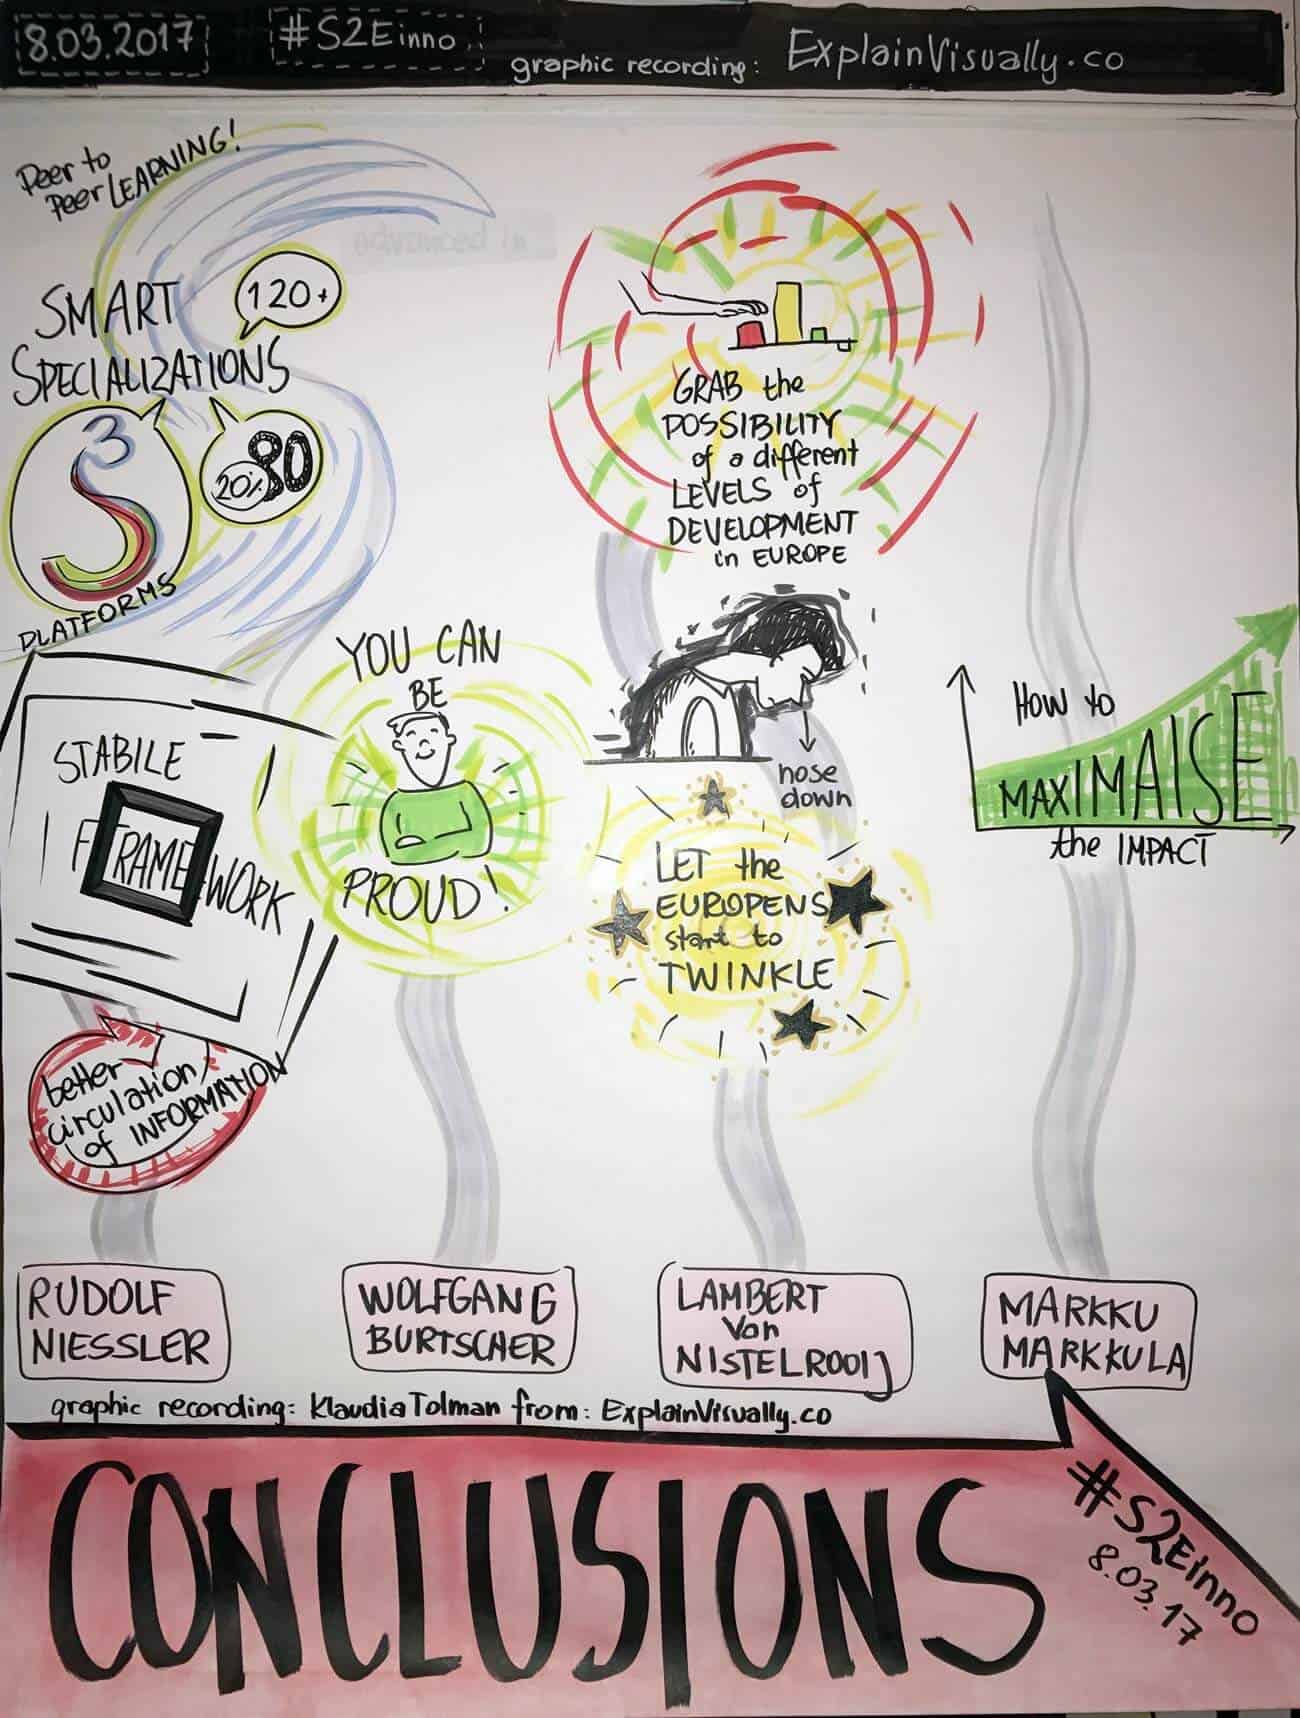 8.03.2017
#S2Einno
graphic recording: ExplainVisually.co
Peer to
Peer LEARNING!
SMART
SPECIALIZATIONS
120+
S3
20% 80
PLATFORMS
STABILE
FRAMEWORK
better
circulation
of INFORMATION
YOU CAN
BE
PROUD!
GRAB the
POSSIBILITY
of a different
LEVELS of
DEVELOPMENT
in EUROPE
nose
down
LET the
EUROPENS
start to
TWINKLE
HOW to
MAXIMAISE
the IMPACT
RUDOLF
NIESSLER
WOLFGANG
BURTSCHER
LAMBERT
Van
NISTELROOIJ
MARKKU
MARKKULA
graphic recording: Klaudia Tolman from: ExplainVisually.co
CONCLUSIONS
#S2Einno
8.03.17